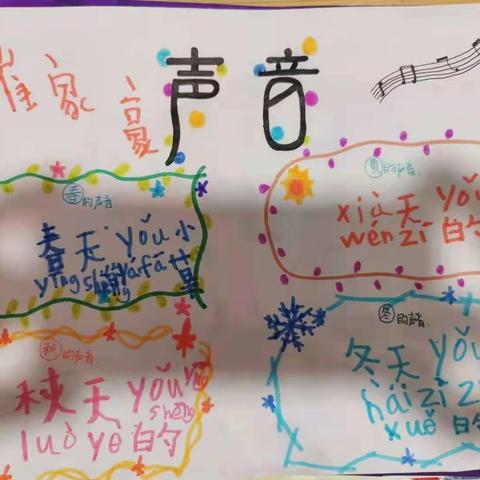 崔家豪
声音
春的声音
春天yǒu小
yīngshēng yáfā
夏的声音
xià天yǒu
wénzǐ的
秋的声音
秋天yǒu
shēng
luò yè的
冬的声音
冬天yǒu
háizǐ
xuě的